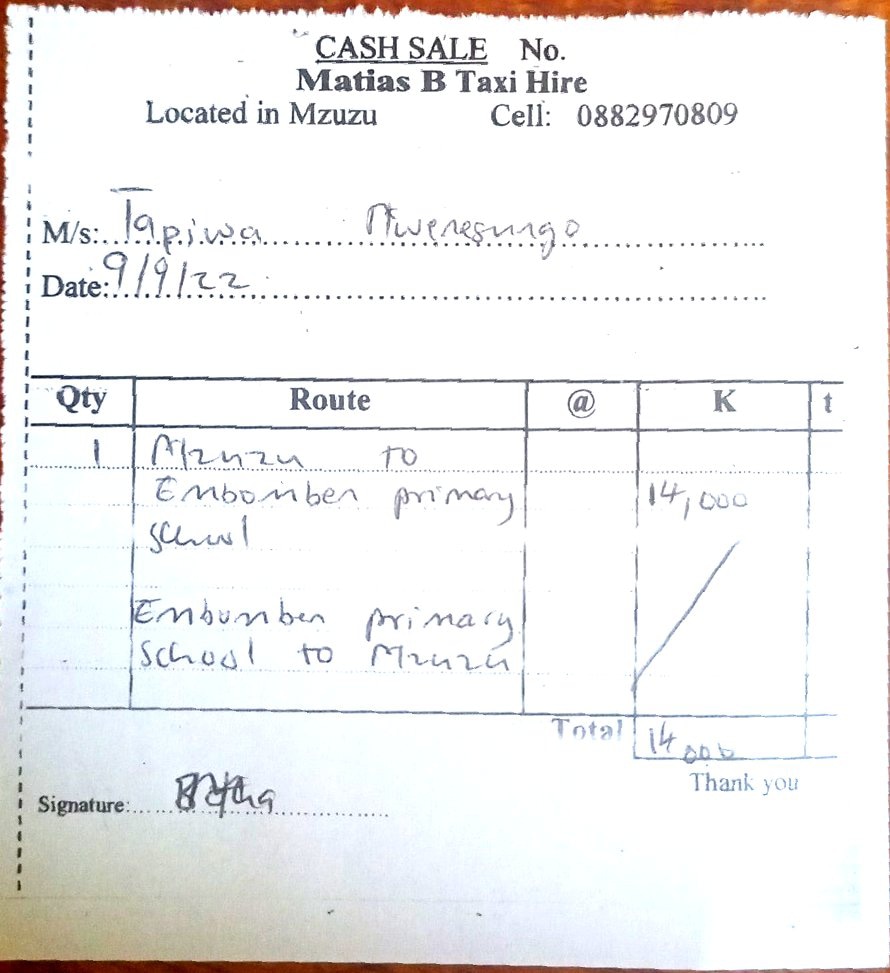 CASH SALE No.
Matias B Taxi Hire
Located in Mzuzu Cell: 0882970809
M/s: Tapiwa
Date: 9/9/22
Qty Route @ K t
1 Mzuzu to
Embomben primary 14,000
school
Embomben primary
school to Mzuzu
Total 14 000
Thank you
Signature: